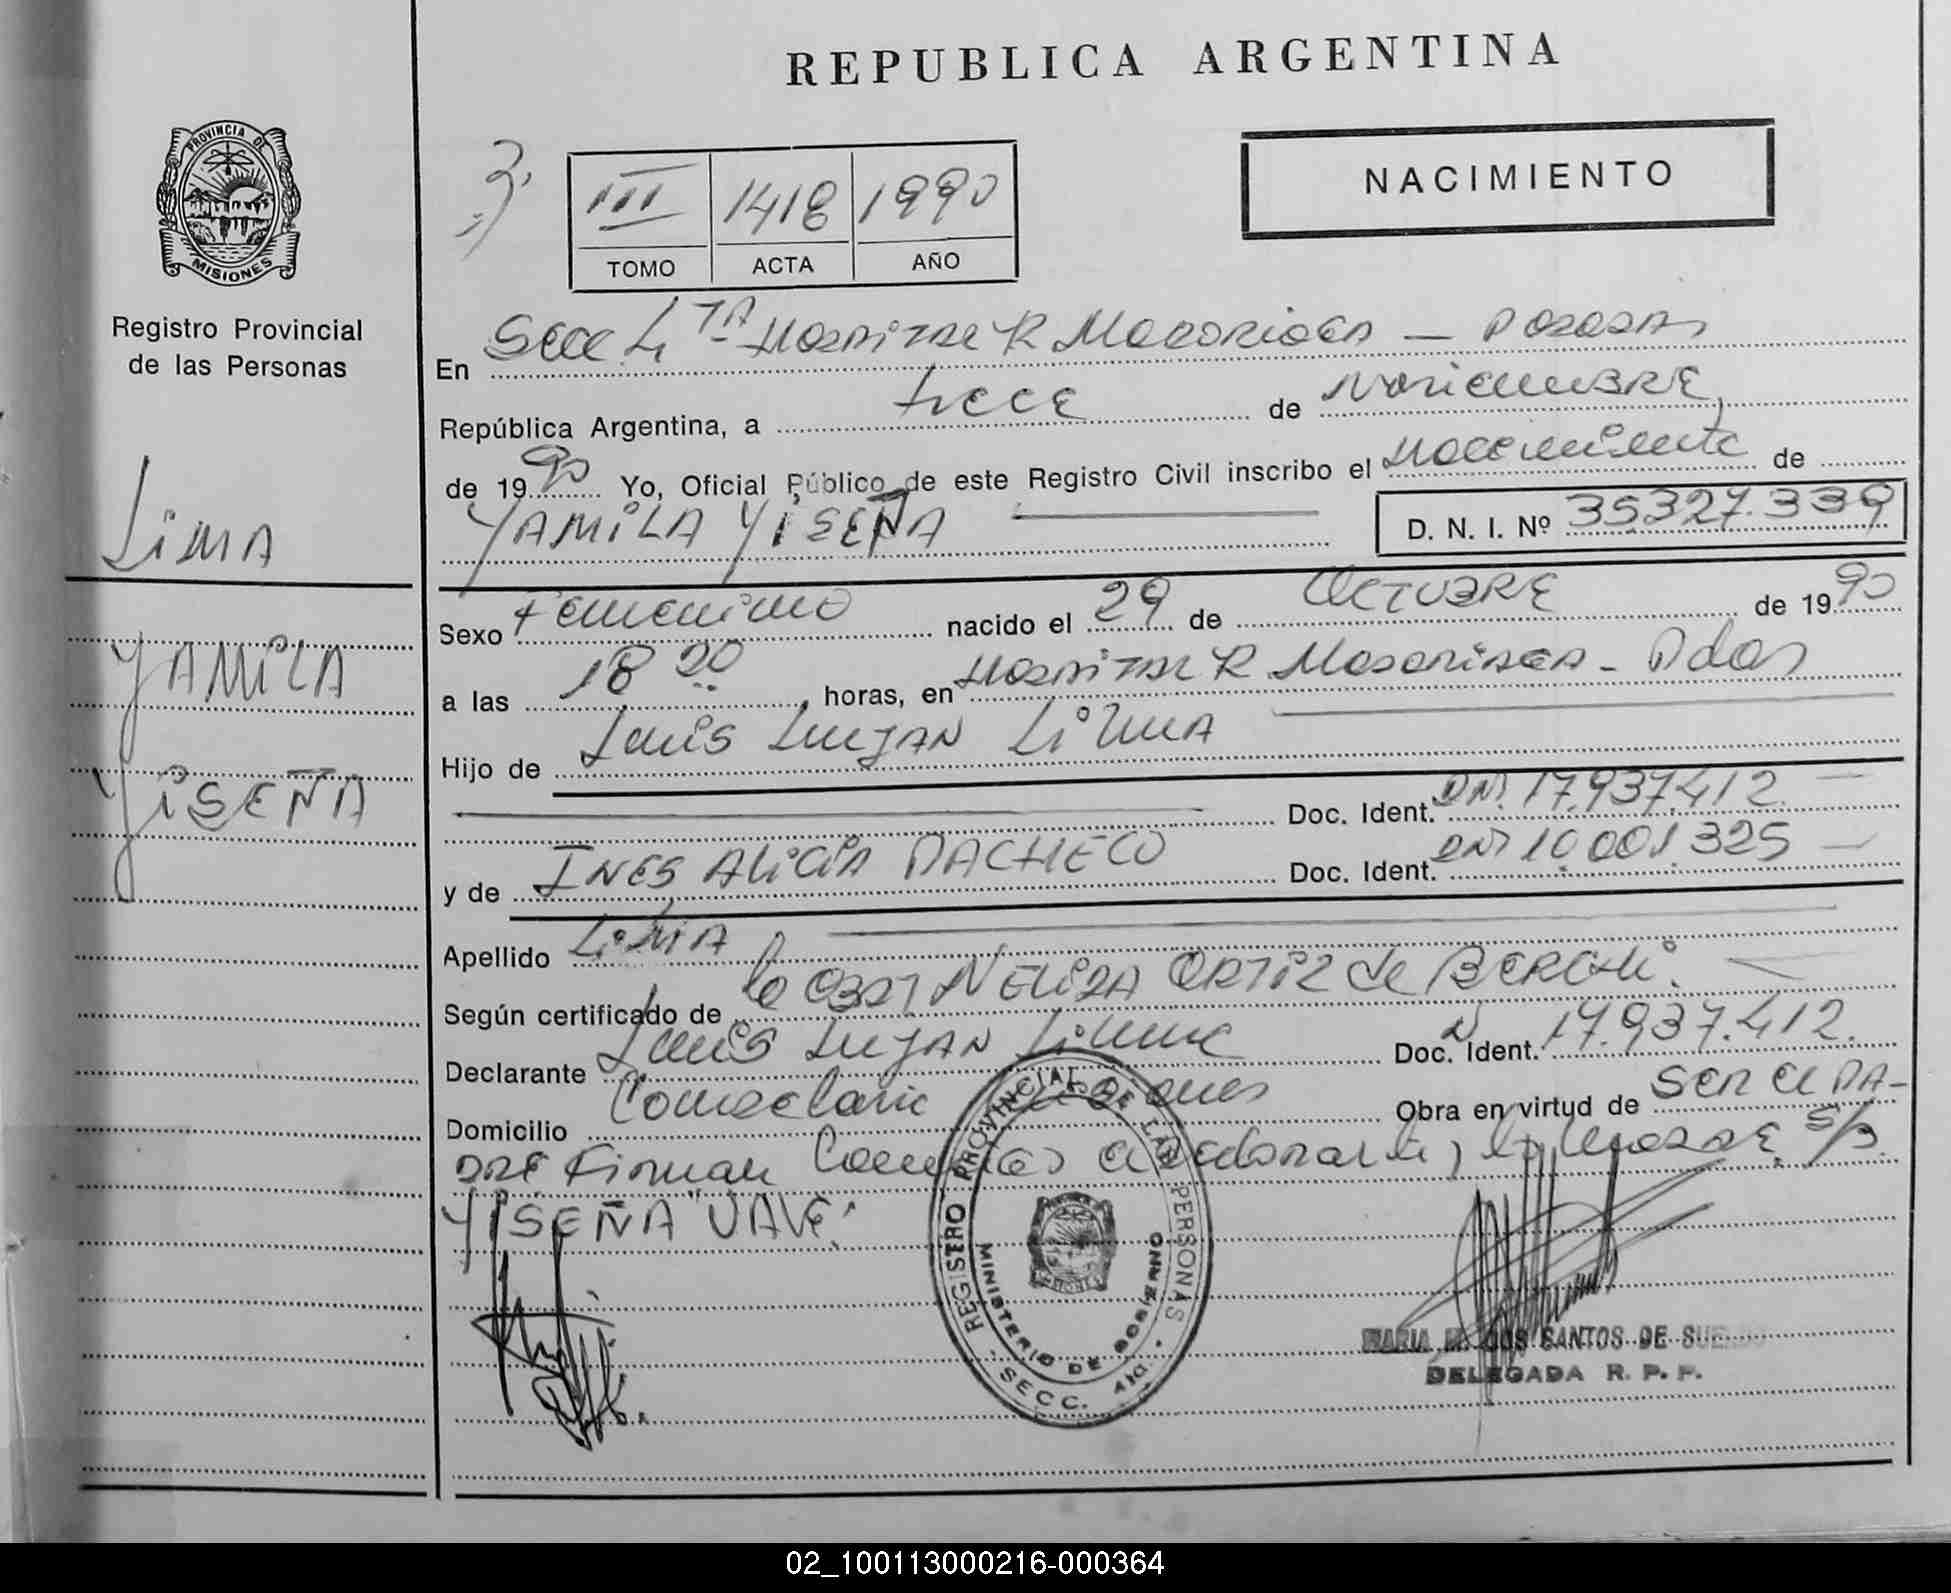 REPUBLICA ARGENTINA
PROVINCIA DE
MISIONES
Registro Provincial
de las Personas
III 1418 1990
TOMO ACTA AÑO
NACIMIENTO
En Secc 4TA Hospital R Madariaga — Posadas
República Argentina, a trece de Noviembre
de 1990 Yo, Oficial Público de este Registro Civil inscribo el nacimiento de
YAMiLA YiSEÑA D. N. I. Nº 35327.339
LiMA
YAMiLA
YiSEÑA
Sexo Femenino nacido el 29 de OCTUBRE de 1990
a las 18 20 horas, en Hospital R Madariaga - Pdas
Hijo de Luis Lujan Lima
Doc. Ident. DNI 17.937.412
y de INES ALiCiA PACHECO Doc. Ident. DNI 10.001.325
Apellido LiMA
Según certificado de la Obst NELIDA ORTIZ de
Declarante Luis Lujan Lima Doc. Ident. 17.937.412.
Domicilio Obra en virtud de SER el PA-
DRE Firman la MADRE S/B
YiSEÑA VALE.
REGISTRO PROVINCIAL DE LAS PERSONAS
MINISTERIO DE GOBIERNO
SECC. 4ta.
MARIA M. DOS SANTOS DE
DELEGADA R. P. P.
02_100113000216-000364